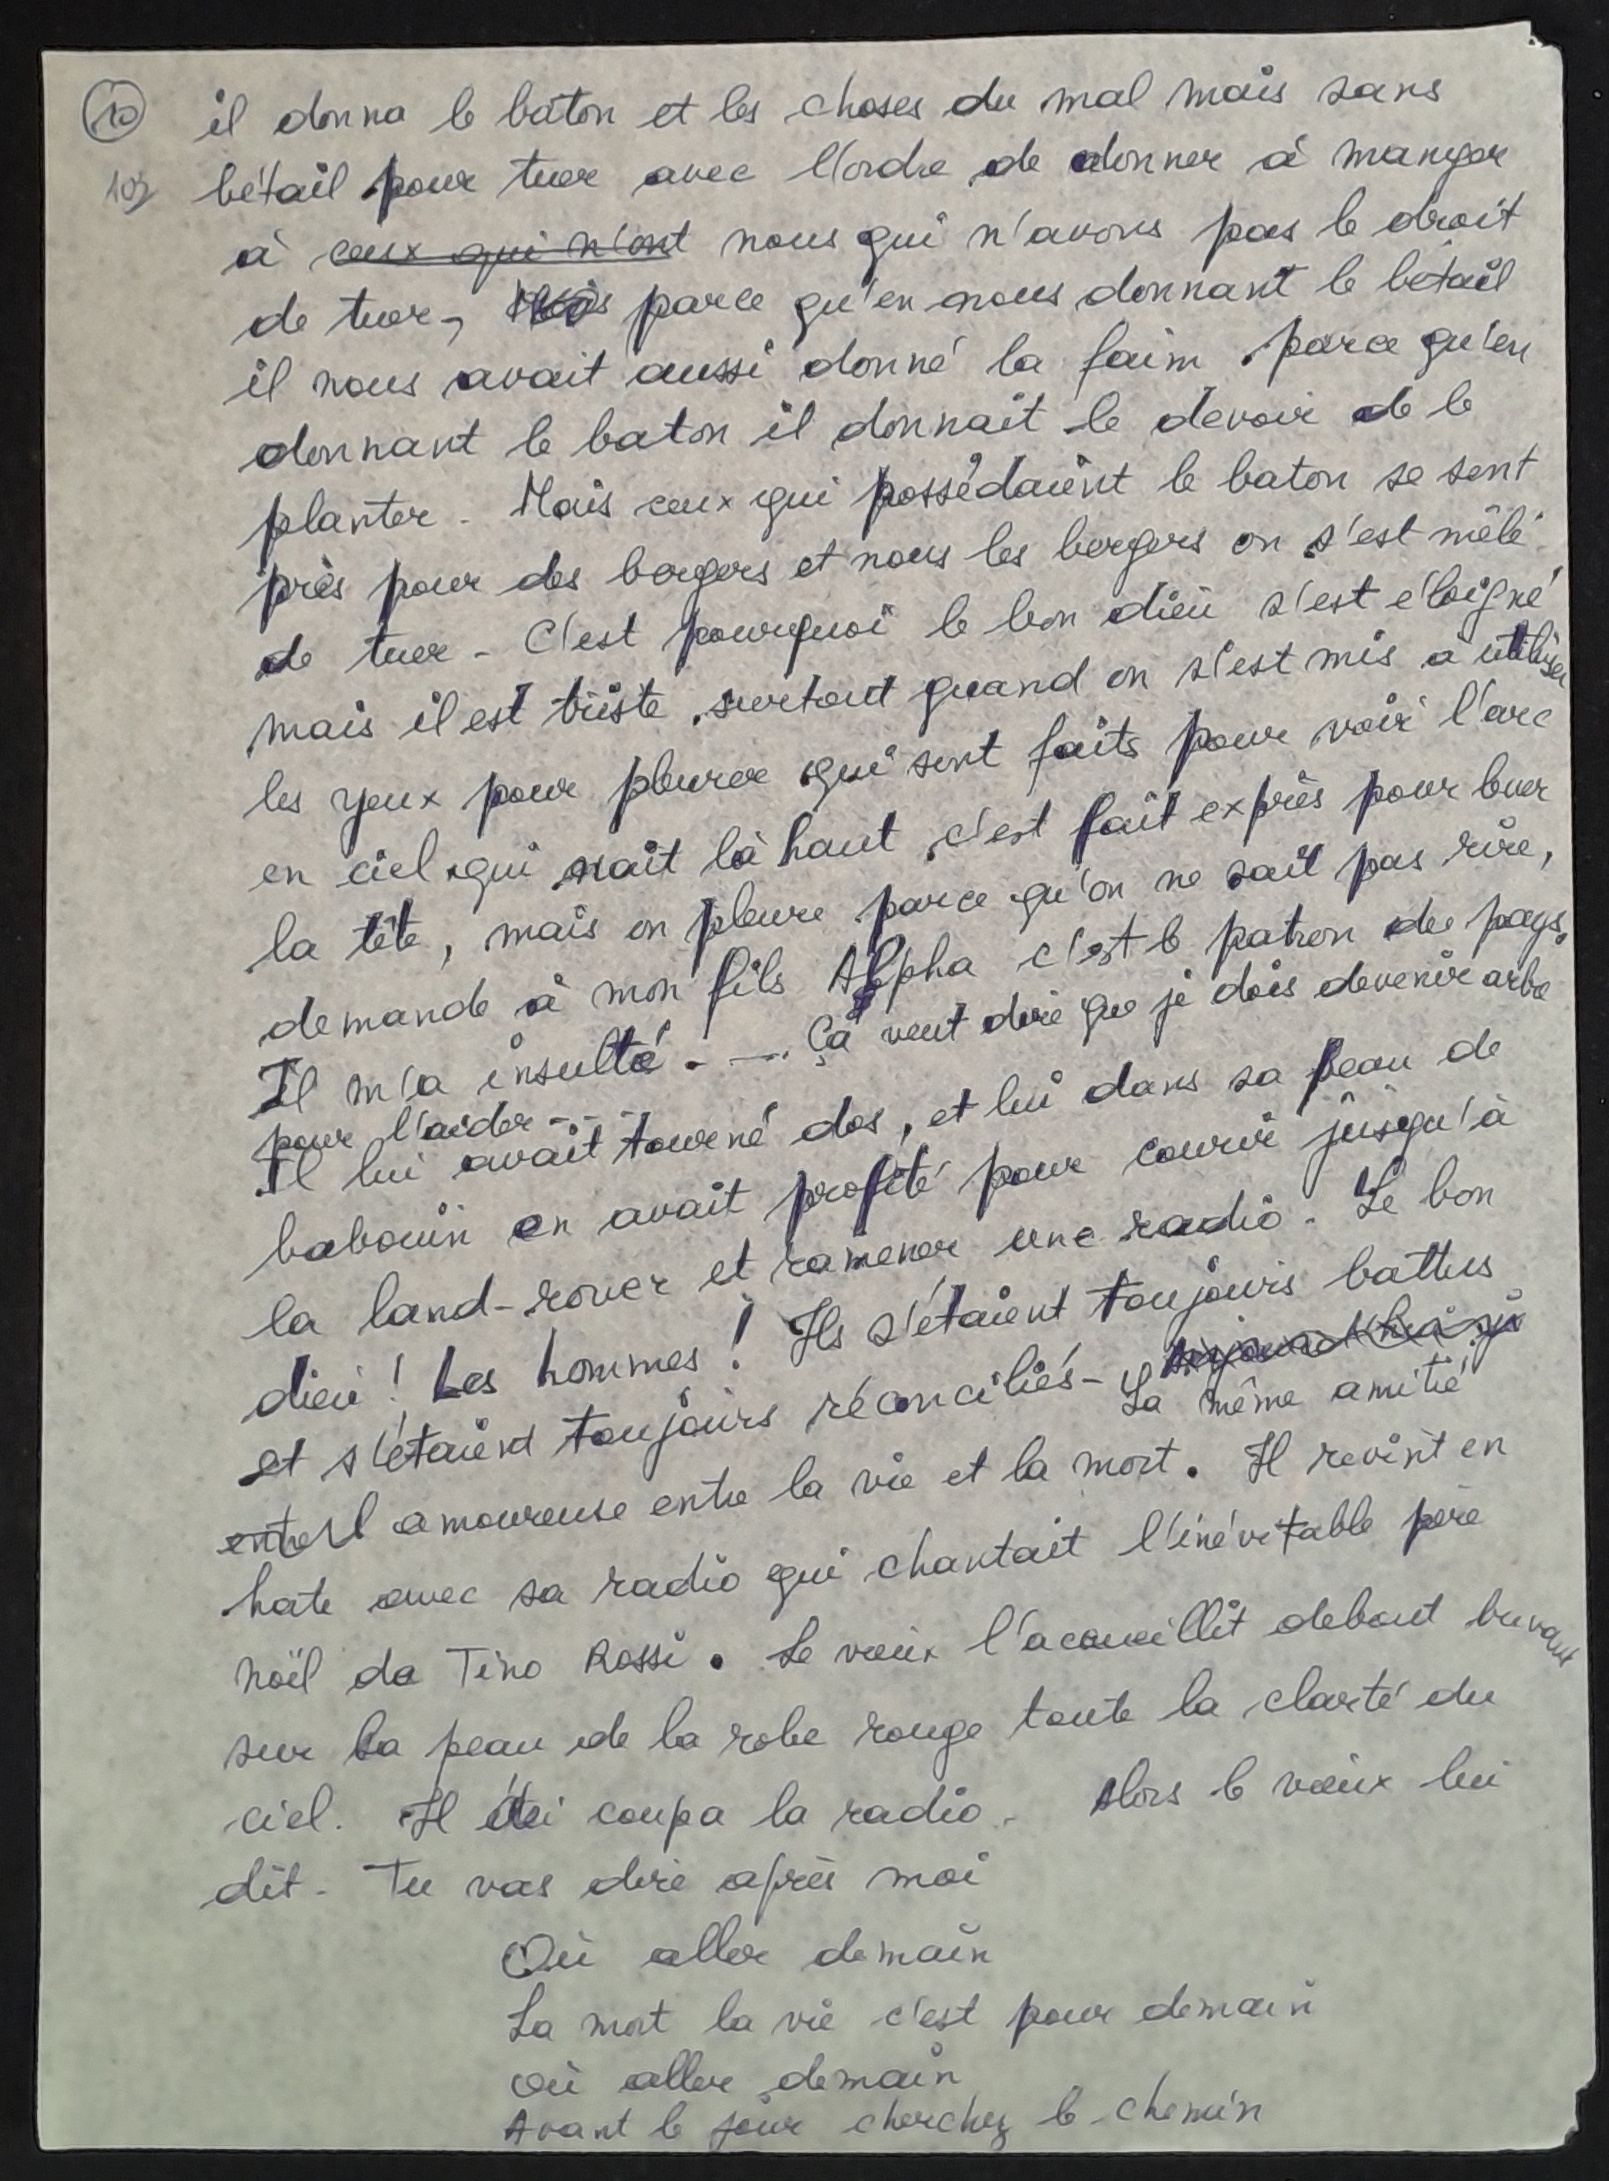 10 il donna le bâton et les choses du mal mais sans
103 bétail pour tuer avec l'ordre de donner à manger
à ceux qui n'ont nous qui n'avons pas le droit
de tuer, parce qu'en nous donnant le bétail
il nous avait aussi donné la faim parce qu'en
donnant le baton il donnait le devoir de le
planter. Mais ceux qui possédaient le baton se sont
près pour des bergers et nous les bergers on s'est mêlé
de tuer - C'est pourquoi le bon dieu s'est éloigné
mais il est triste surtout quand on s'est mis à utiliser
les yeux pour pleurer qui sont faits pour voir l'arc
en ciel qui nait là haut c'est fait exprès pour lever
la tête, mais on pleure parce qu'on ne sait pas rire,
demande à mon fils Alpha c'est le patron du pays.
Il m'a insulté. —. Ça veut dire que je dois devenir arbre
pour l'aider - - -
Il lui avait tourné dos, et lui dans sa peau de
babouin en avait profité pour courir jusqu'à
la land-rover et ramener une radio. Le bon
dieu ! Les hommes ! Ils s'étaient toujours battus
et s'étaient toujours réconciliés - La même amitié
entre amoureuse entre la vie et la mort. Il revint en
hate avec sa radio qui chantait l'inévitable père
noïl de Tino Rossi. Le vieux l'accueillit debout buvant
sur la peau de la robe rouge toute la clarté du
ciel. Il coupa la radio. Alors le vieux lui
dit - Tu vas dire après moi
Où aller demain
La mort la vie c'est pour demain
où aller demain
Avant le jour cherchez le chemin